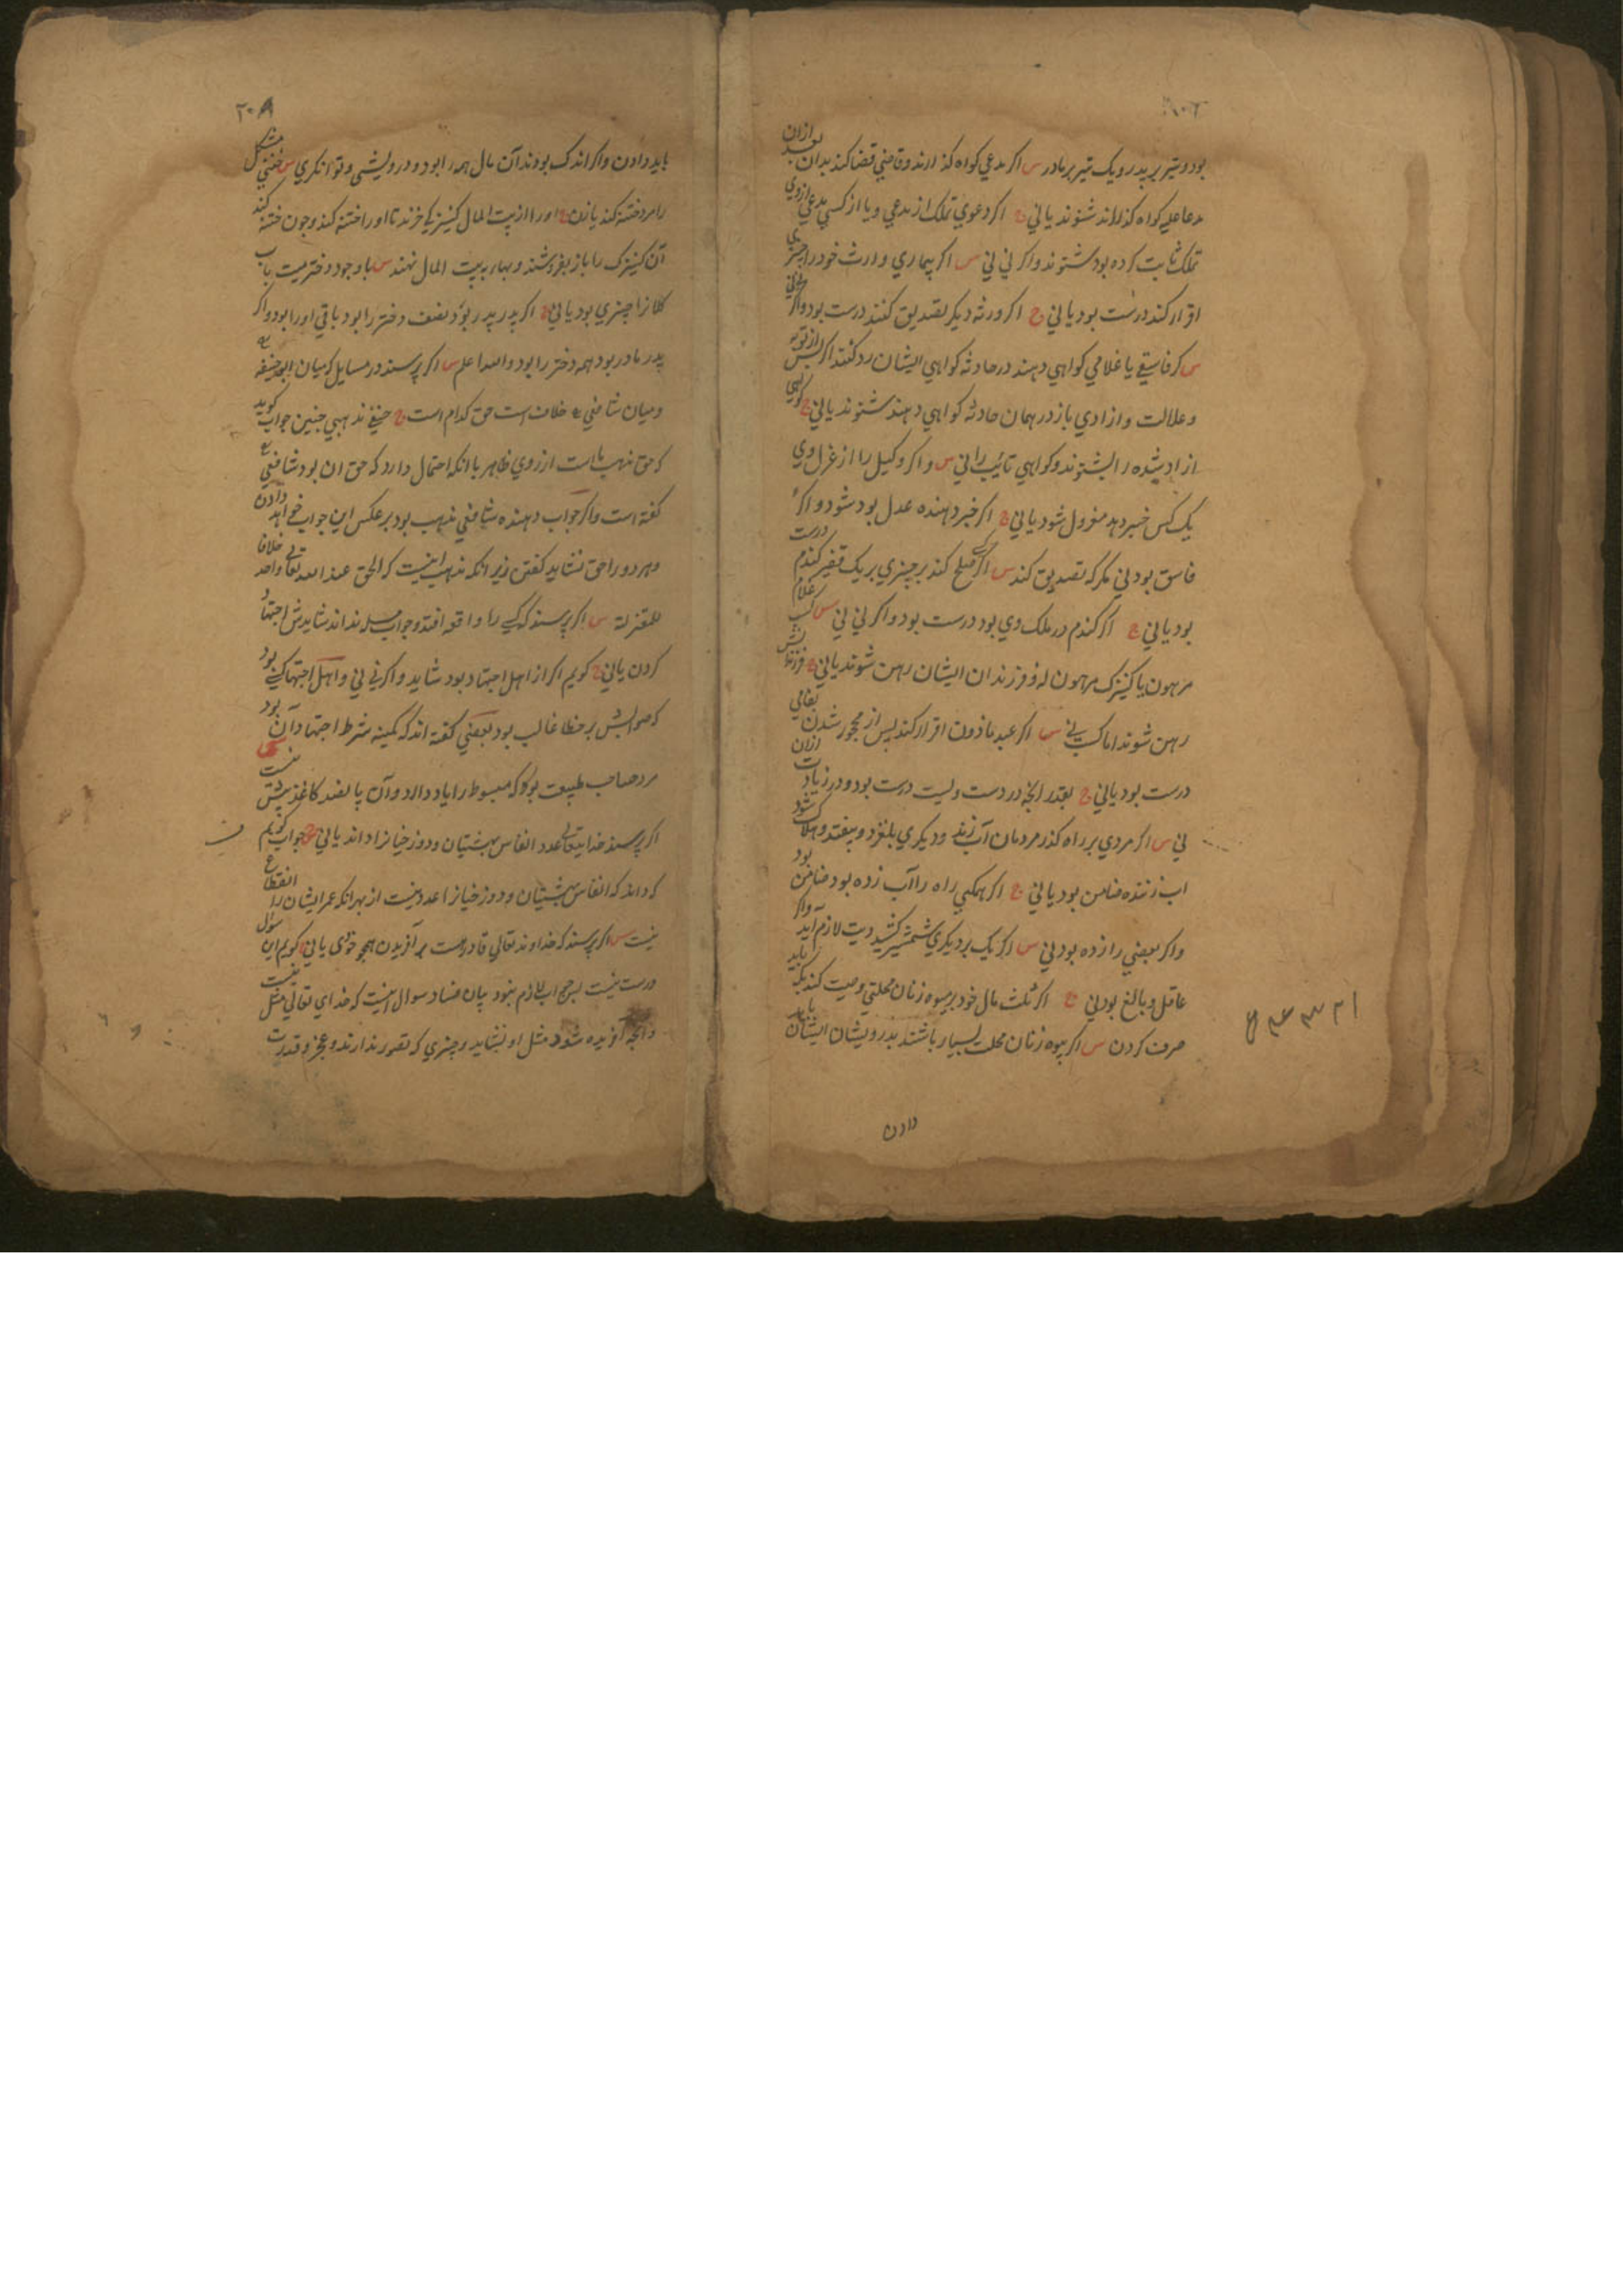 بود و تیر بر پدر و یک تیر بر مادر س اکر مدعی کواه کذارند و قاضی قضا کند بدان بعد ازان
مدعا علیه کواه کذراند شنوند یا نی ج اکر دعوی تملک از مدعی و یا از کسی مدعی ازوی
تملک ثابت کرده بود شنوند واکر نی نی س اکر بیماری وارث خود را بچیزی
اقرار کند درست بود یا نی ج اکر ورثه دیکر تصدیق کنند درست بود واکر نی نی
س کر فاسقی یا غلامی کواهی دهند در حادثه کواهی ایشان رد کنند اکر پس از توبه
وعدالت وازادی باز در همان حادثه کواهی دهند شنوند یا نی ج کواهی
ازاد شده را بشنوند وکواهی تائب را نی س واکر وکیل را از عزل وی
یک کس خبر دهد معزول شود یا نی ج اکر خبر دهنده عدل بود شود واکر
فاسق بود نی مکر که تصدیق کند س اکر کسی صلح کند بر چیزی بر یک قفیز کندم درست
بود یا نی ج اکر کندم در ملک وی بود درست بود واکر نی نی س کسب غلام
مرهون یا کنیزک مرهونه و فرزندان ایشان رهن شوند یا نی ج فرزندانش
رهن شوند اما کسب نی س اکر عبد ماذون اقرار کند پس از محجور شدن
درست بود یا نی ج بقدر انچه در دست ویست درست بود و در زیادت ازان
نی س اکر مردی بر راه کذر مردمان آب زند و دیکری بلغزد و بیفتد و هلاک شود
اب زننده ضامن بود یا نی ج اکر همکی راه را آب زده بود ضامن بود
واکر بعضی را زده بود نی س اکر یک بر دیکری شمشیر کشید دیت لازم آید واکر
عاقل و بالغ بود نی ج اکر ثلث مال خود بر بیوه زنان محلتی وصیت کند
صرف کردن س اکر بیوه زنان محلت بسیار باشند بدرویشان ایشان باید
دادن
۲۰۸
باید دادن واکر اندک بودند آن مال همه را بود و درویشی و توانکری س خنثی مشکل
را مرد ختنه کند یا زن ج او را از بیت المال کنیزکی خرند تا او را ختنه کند وچون ختنه کند
آن کنیزک را باز بفروشند و بها به بیت المال نهند س با وجود دختر میت باب
کلانرا چیزی بود یا نی ج اکر پدر پدر بود نصف دختر را بود باقی او را بود واکر
پدر مادر بود همه دختر را بود والله اعلم س اکر پرسند در مسایل که میان ابو حنیفه
ومیان شافعی خلاف است حق کدام است ج حنفی مذهبی چنین جواب کوید
که حق مذهب ما است از روی ظاهر با انکه احتمال دارد که حق ان بود شافعی
کفته است واکر جواب دهنده شافعی مذهب بود بر عکس این جواب خواهد دادن
وهر دو را حق نشاید کفتن زیرا نکه مذهب اینست که الحق عند الله تعالی واحد خلافا
للمعتزلة س اکر پرسند که کسی را واقعه افتد وجواب مسله نداند شایدش اجتهاد
کردن یا نی ج کویم اکر از اهل اجتهاد بود شاید واکر نی نی واهل اجتهاد کسی بود
که صوابش بر خطا غالب بود بعضی کفته اند که کمینه شرط اجتهاد آن بود
مرد صاحب طبیعت بود که مبسوط را یاد دارد وآن پانصد کاغذ بیش نیست
اکر پرسند خدایتعالی عدد انفاس بهشتیان ودوزخیانرا داند یا نی ج جواب کویم
که داند که انفاس بهشتیان ودوزخیانرا عدد نیست از بهر انکه عمر ایشان را انقطاع
نیست س اکر پرسند که خداوند تعالی قادر هست بر آفریدن همچو خودی یا نی ج کویم این سؤال
درست نیست پس جواب لازم نبود بیان فساد سوال اینست که خدای تعالی مثل نیست
وانچه آفریده شود مثل او نباشد وچیزی که تصور ندارد عجز وقدرت